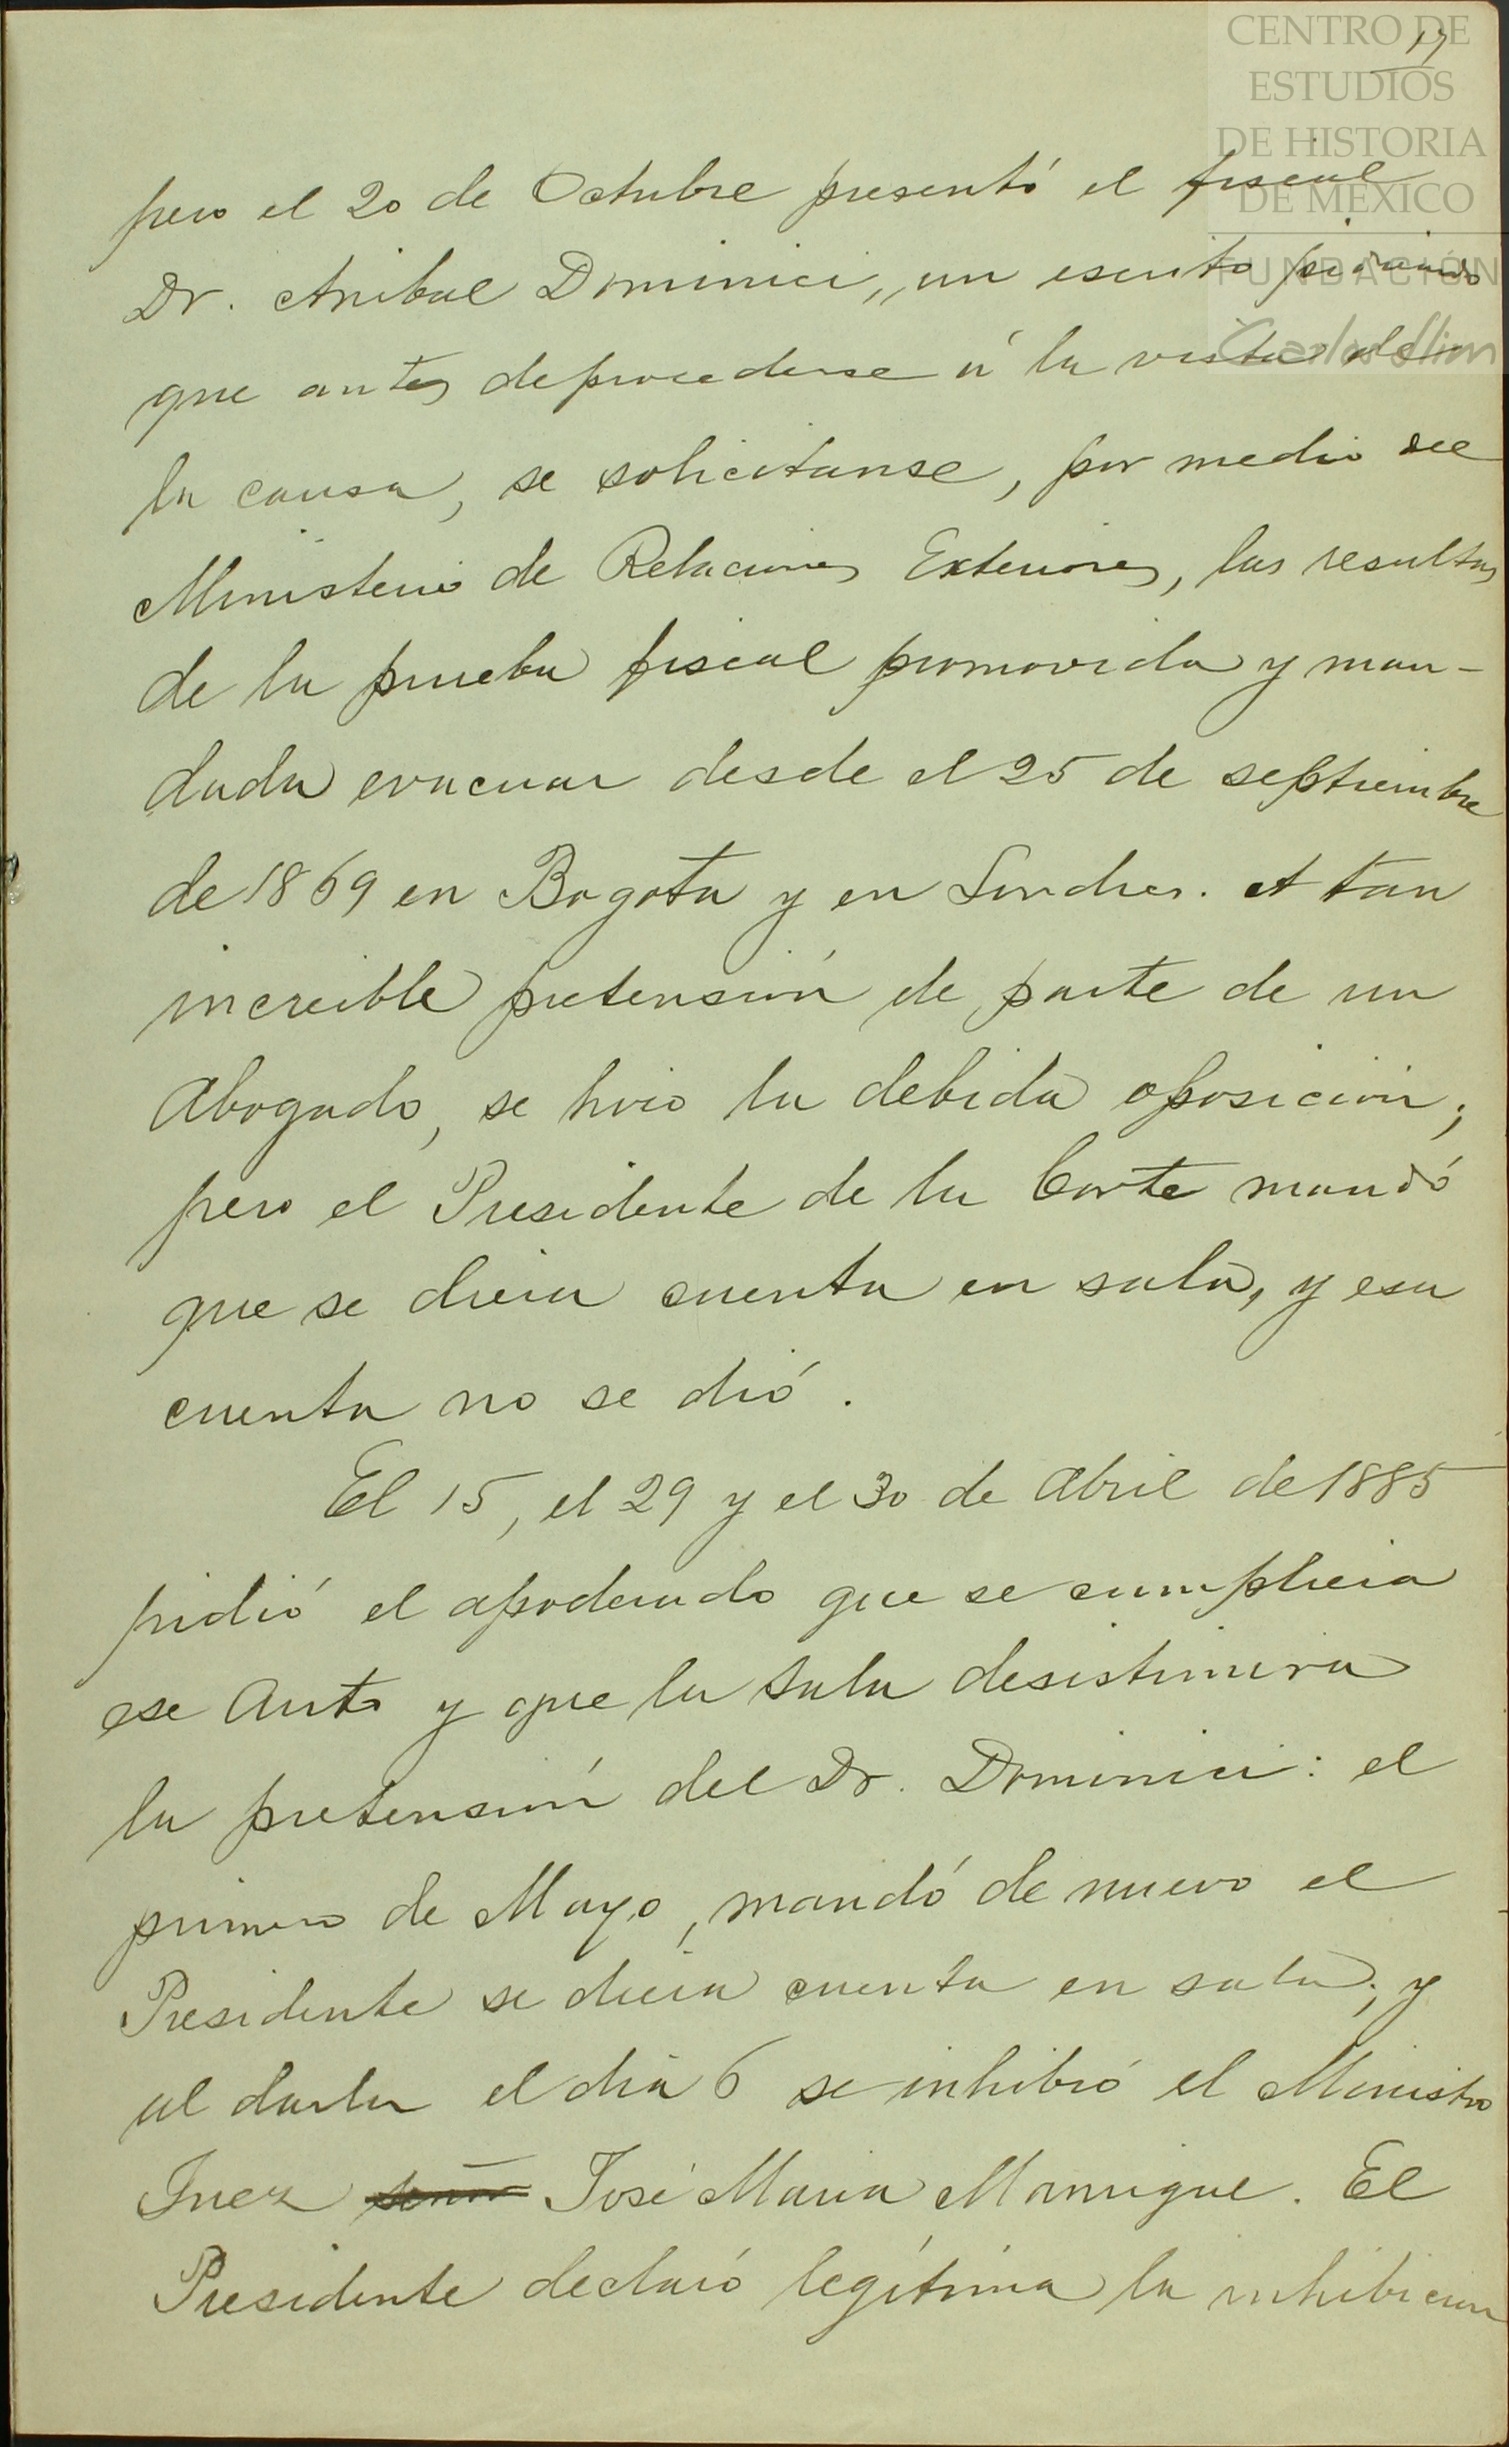 17
CENTRO DE
ESTUDIOS
DE HISTORIA
DE MEXICO
FUNDACIÓN
Carlos Slim
pero el 20 de Octubre presentó el fiscal
Dr. Anibal Dominici, un escrito pidiendo
que antes de procederse á la vista de
la causa, se solicitanse, por medio del
Ministerio de Relaciones Exteriores, las resultas
de la prueba fiscal promovida y man-
dada evacuar desde el 25 de septiembre
de 1869 en Bogota y en Londres. A tan
increible pretensión de parte de un
Abogado, se hizo la debida oposicion;
pero el Presidente de la Corte mandó
que se diera cuenta en sala, y esa
cuenta no se dió.
El 15, el 29 y el 30 de Abril de 1885
pidió el apoderado que se cumpliera
ese Auto y que la Sala desistimira
la pretensión del Dr. Dominici: el
primero de Mayo, mandó de nuevo el
Presidente se diera cuenta en sala; y
al darla el dia 6 se inhibió el Ministro
Juez señor José Maria Manrique. El
Presidente declaró legítima la inhibicion